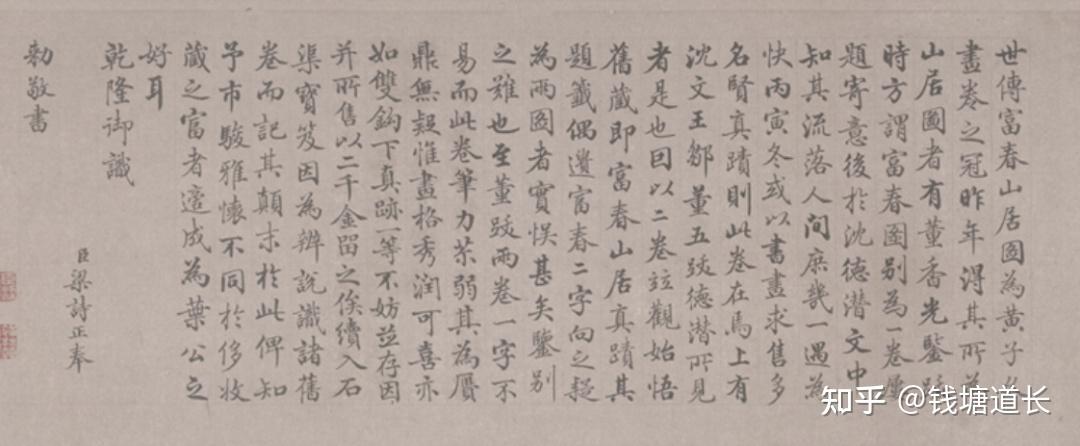 世傳富春山居圖為黃子久
畫卷之冠昨年得其所為
山居圖者有董香光鑒跋
時方謂富春圖別為一卷屢
題寄意後於沈德潛文中
知其流落人間庶幾一遇為
快丙寅冬或以書畫求售多
名賢真蹟則此卷在焉上有
沈文王鄒董五跋德潛所見
者是也因以二卷竝觀始悟
舊藏即富春山居真蹟其
題籤偶遺富春二字向之疑
為兩圖者實悮甚矣鑒別
之難也至董跋兩卷一字不
易而此卷筆力苶弱其為贋
鼎無疑惟畫格秀潤可喜亦
如雙鈎下真跡一等不妨並存因
并所售以二千金留之俟續入石
渠寶笈因為辨說識諸舊
卷而記其顛末於此俾知
予市駿雅懷不同於侈收
藏之富者適成為葉公之
好耳
乾隆御識
臣梁詩正奉
勅敬書
知乎 @钱塘道长